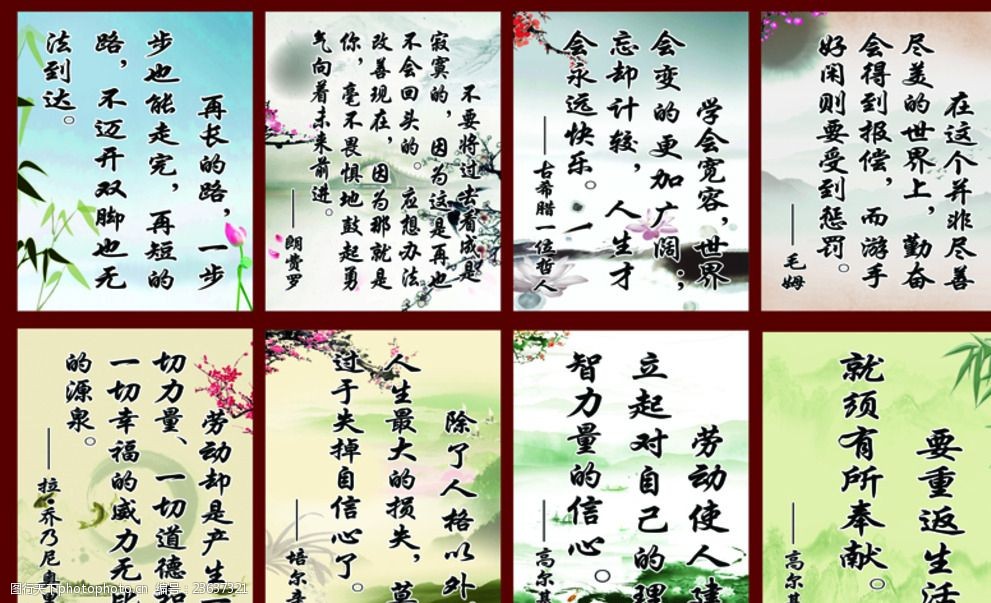 再长的路，一步
步也能走完，再短的
路，不迈开双脚也无
法到达。
不要将过去看成是
寂寞的，因为这是再也
不会回头的。应想办法
改善现在，因为那就是
你，毫不畏惧地鼓起勇
气向着未来前进。
——朗费罗
学会宽容，世界
会变的更加广阔；
忘却计较，人生才
会永远快乐。一
——古希腊一位哲人
在这个并非尽善
尽美的世界上，勤奋
会得到报偿，而游手
好闲则要受到惩罚。
——毛姆
劳动却是产生
切力量、一切道德
一切幸福的威力无比
的源泉。
——拉·乔乃尼奥里
除了人格以外
人生最大的损失，莫
过于失掉自信心了。
——培尔辛
劳动使人建
立起对自己的理
智力量的信心。
——高尔基
要重返生活
就须有所奉献。
——高尔基
图行天下photophoto.cn 编号：23637321